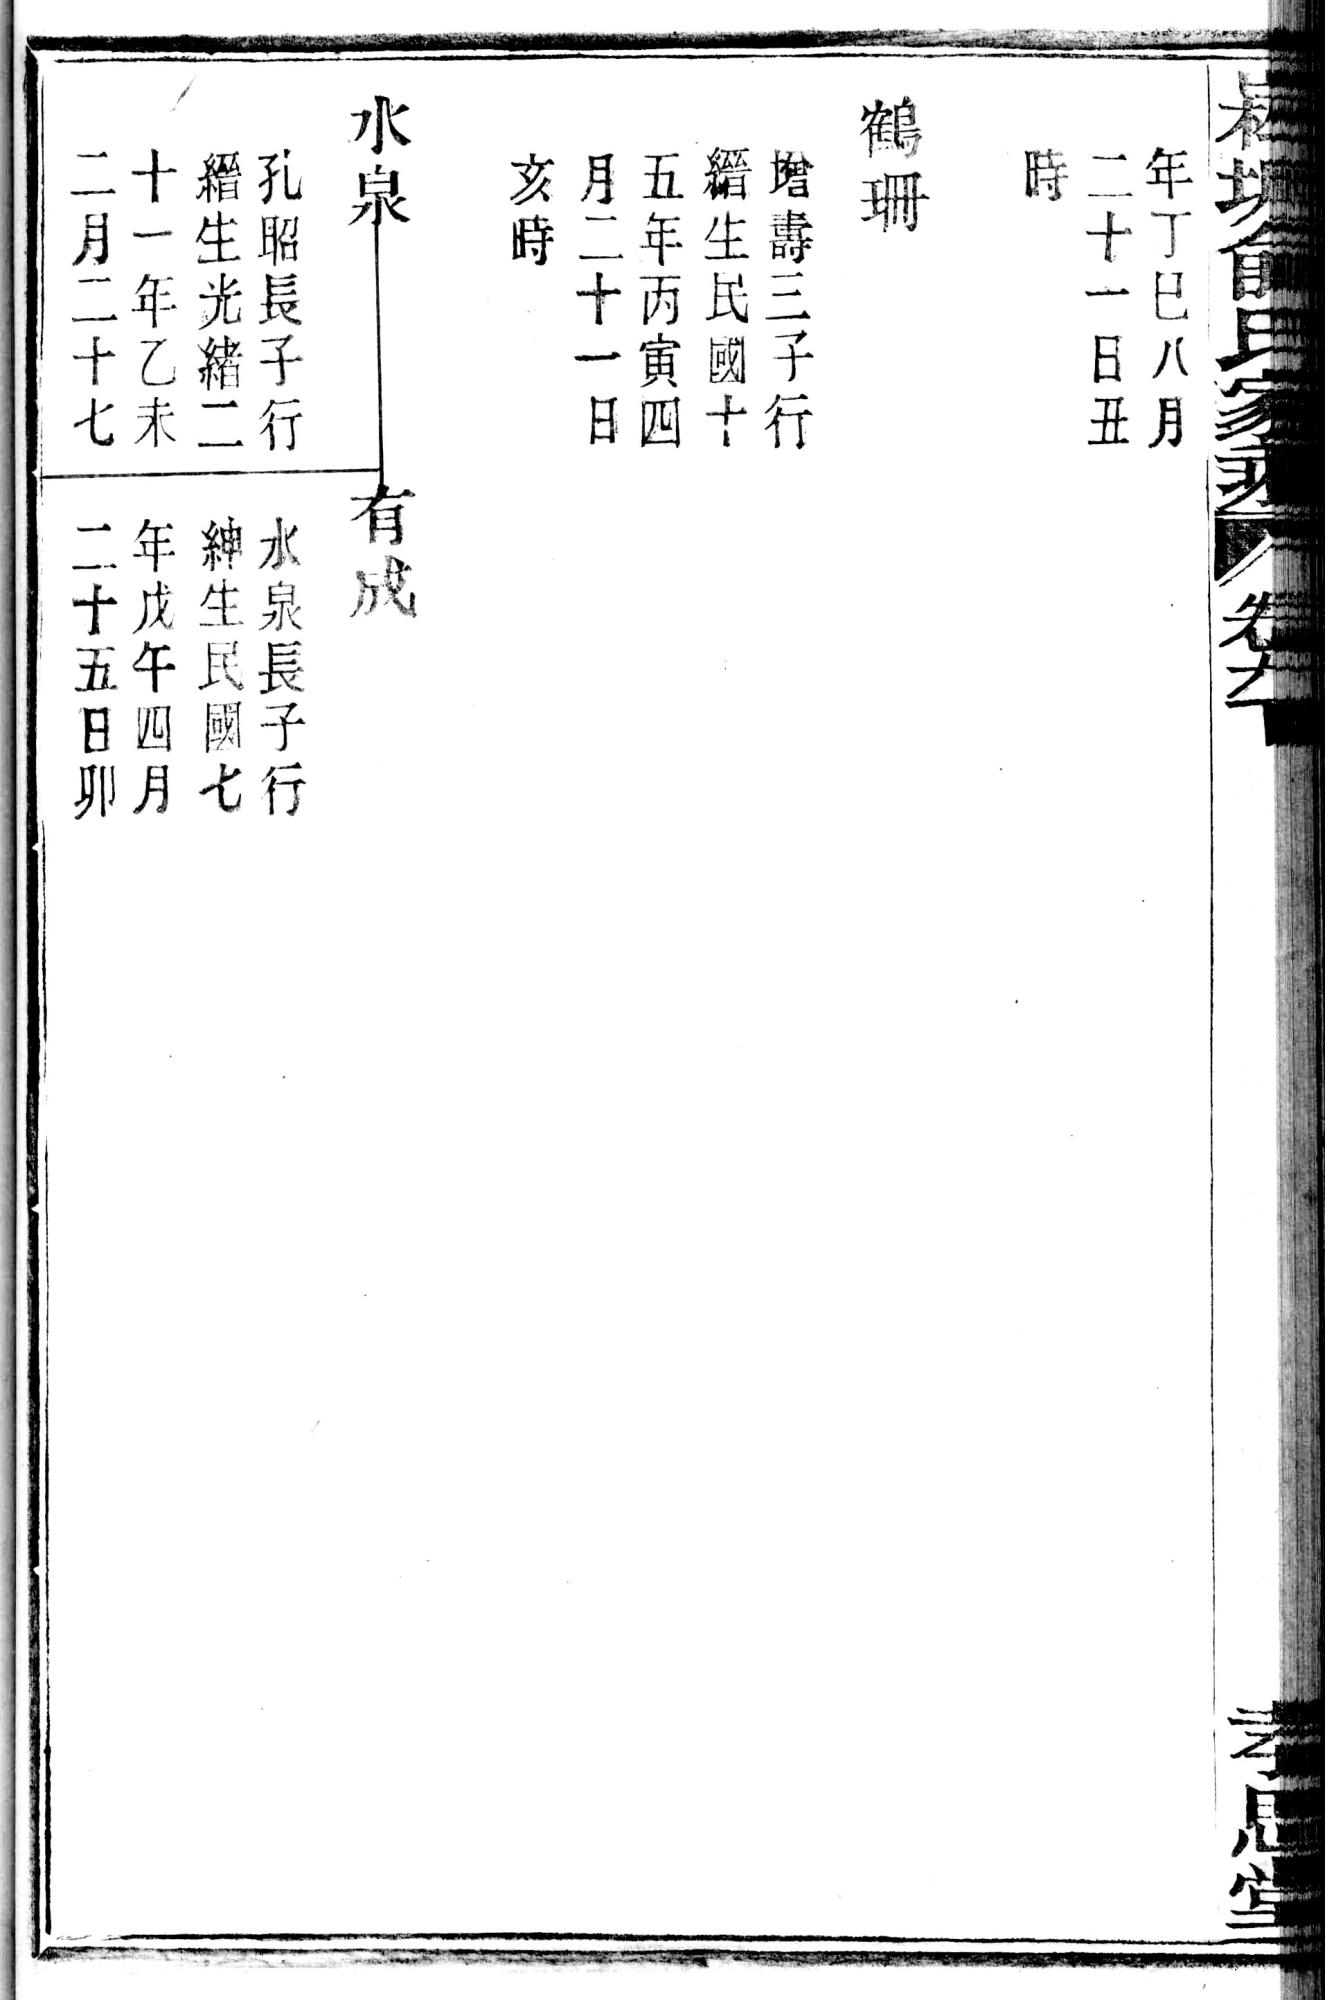 年丁巳八月
二十一日丑
時
鶴珊
增壽三子行
縉生民國十
五年丙寅四
月二十一日
亥時
水泉
孔昭長子行
縉生光緒二
十一年乙未
二月二十七
有成
水泉長子行
紳生民國七
年戊午四月
二十五日卯
俞氏家乘
卷
孝思堂